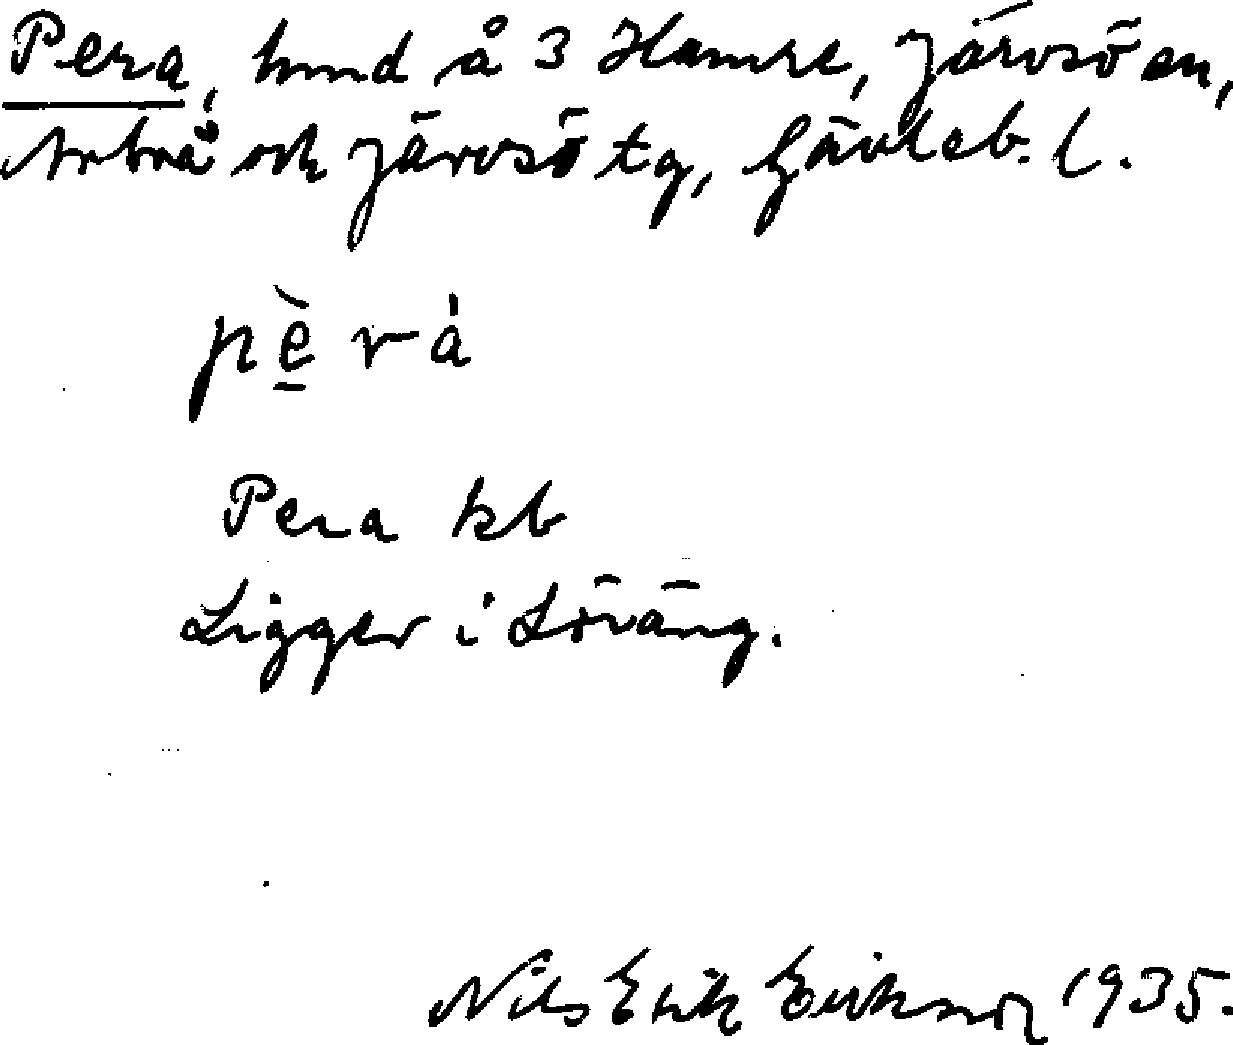 Pera, hmd å 3 Hamre, Järvsö sn,
Arbrå och Järvsö tg, Gävleb. l.
pè̱rà
Pera kb
Ligger i Löväng.
Nils Erik Eriksson 1935.